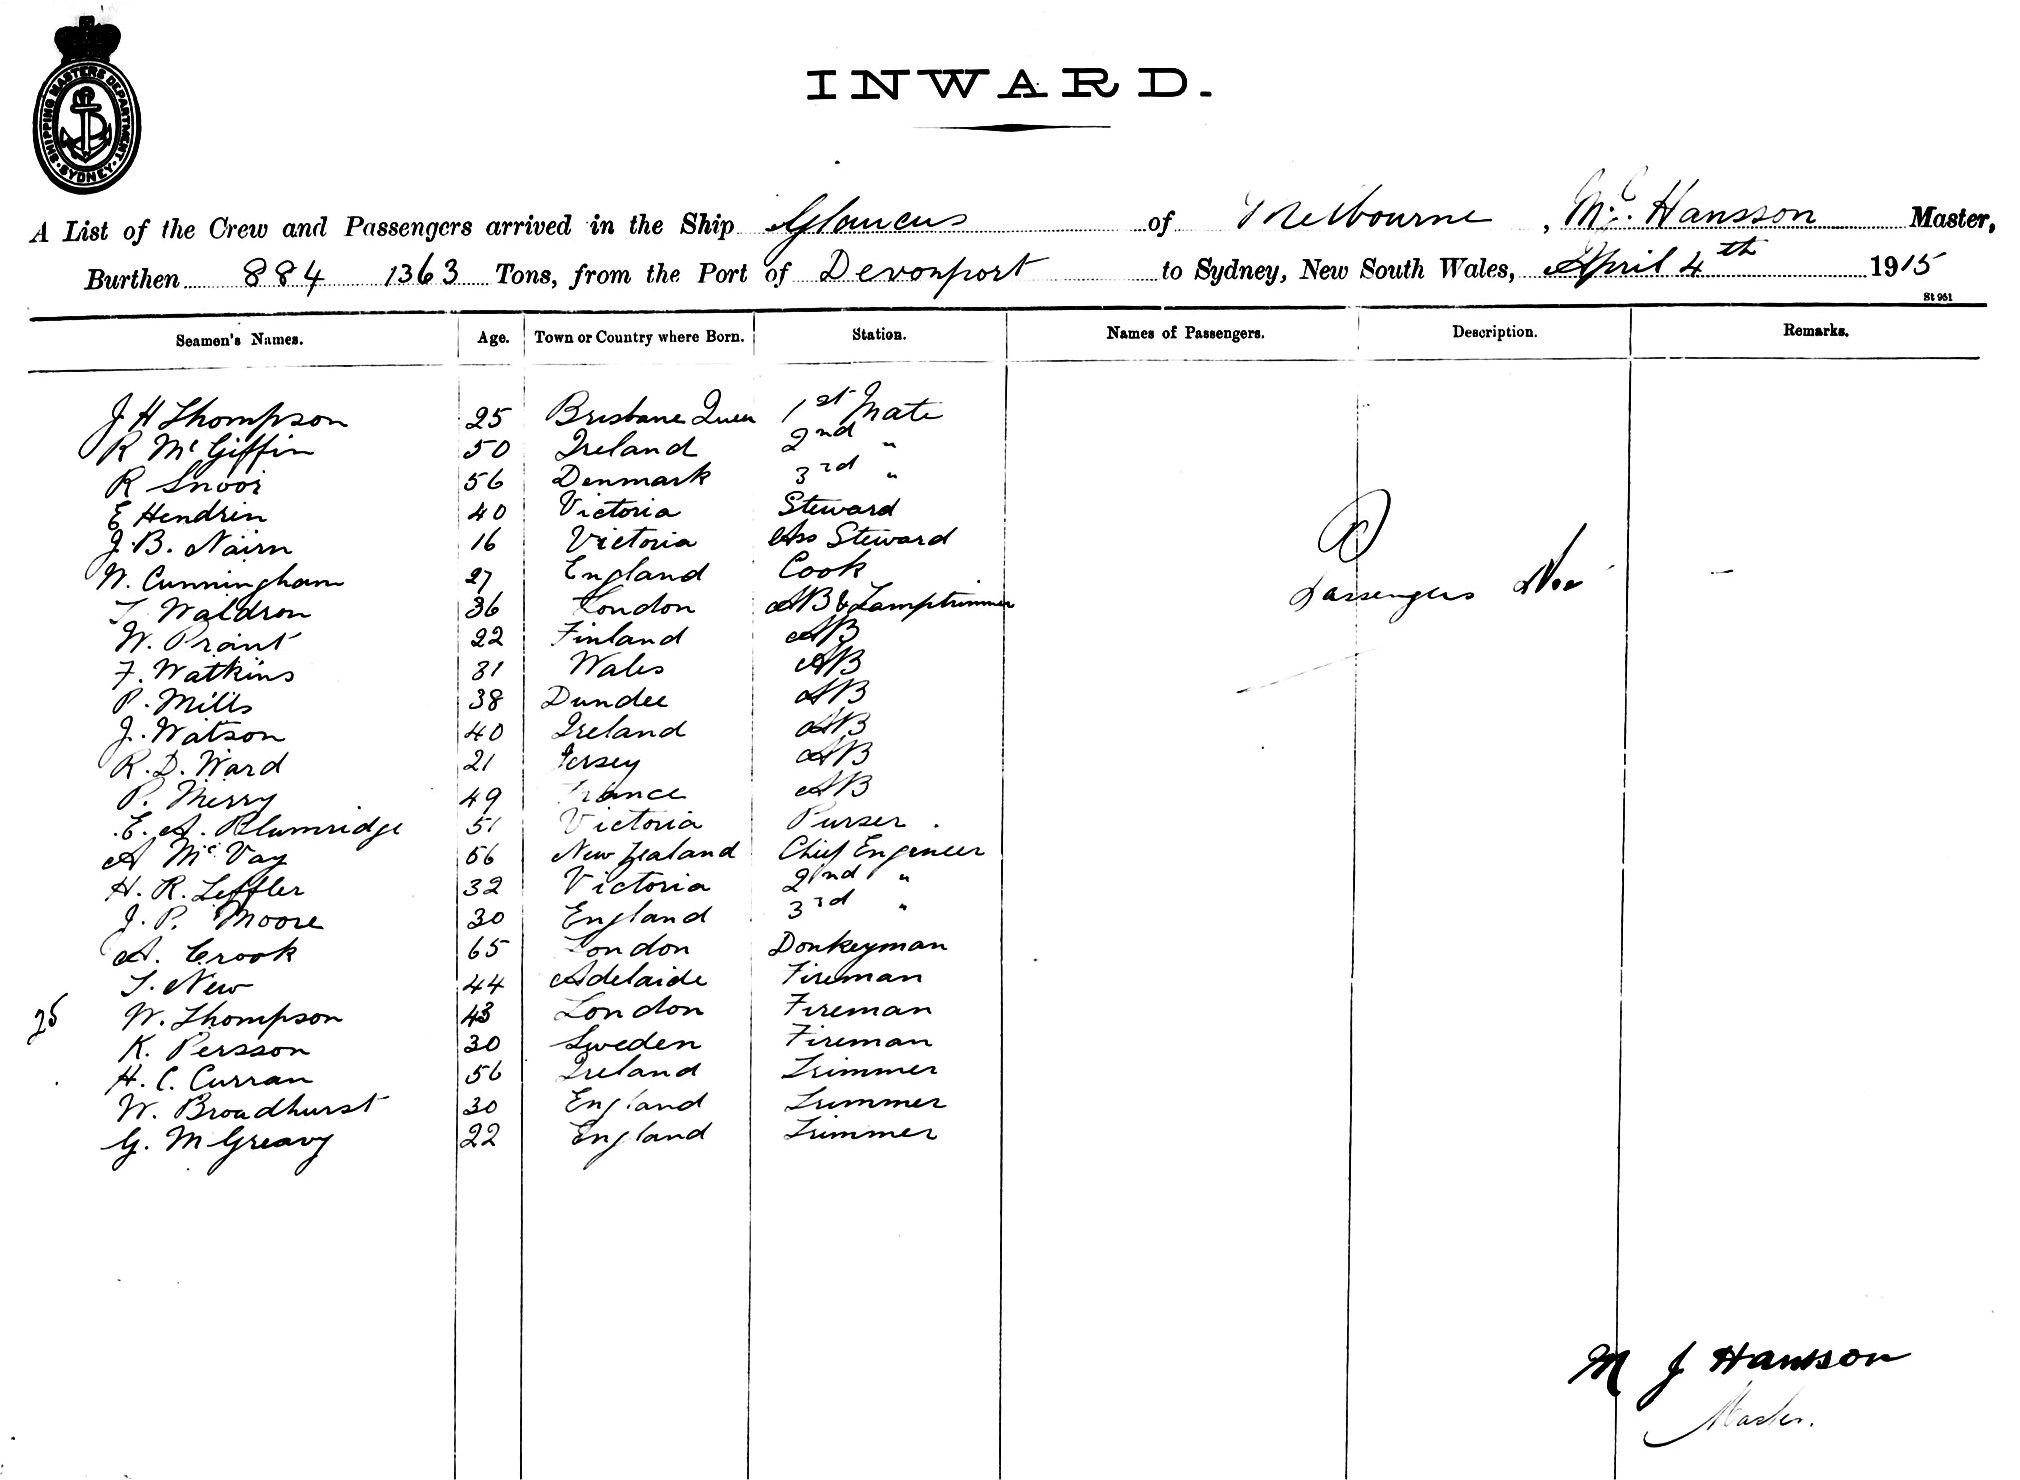 SHIPPING MASTERS DEPARTMENT · SYDNEY ·
INWARD.
A List of the Crew and Passengers arrived in the Ship Glaucus of Melbourne, Hansson Master,
Burthen 884 1363 Tons, from the Port of Devonport to Sydney, New South Wales, April 4th 1915
St 951
Seamen's Names. Age. Town or Country where Born. Station. Names of Passengers. Description. Remarks.
J H Thompson 25 Brisbane 1st Mate
R McGiffin 50 Ireland 2nd "
R Snoor 56 Denmark 3rd "
E Hendrin 40 Victoria Steward
J. B. Nairn 16 Victoria Ass Steward
W. Cunningham 27 England Cook
T. Waldron 36 London AB & Lamptrimmer
W. Prant 22 Finland AB
F. Watkins 31 Wales AB
P. Mills 38 Dundee AB
J. Watson 40 Ireland AB
R. D. Ward 21 Jersey AB
P. Merry 49 France AB
E. A. Blumridge 51 Victoria Purser.
A McVay 56 New Zealand Chief Engineer
H. R. Leffler 32 Victoria 2nd "
J. P. Moore 30 England 3rd "
A. Crook 65 London Donkeyman
T. New 44 Adelaide Fireman
25 W. Thompson 43 London Fireman
K. Persson 30 Sweden Fireman
H. C. Curran 56 Ireland Trimmer
W. Broadhurst 30 England Trimmer
G. McGreavy 22 England Trimmer
Passengers
M J Hansson
Master.